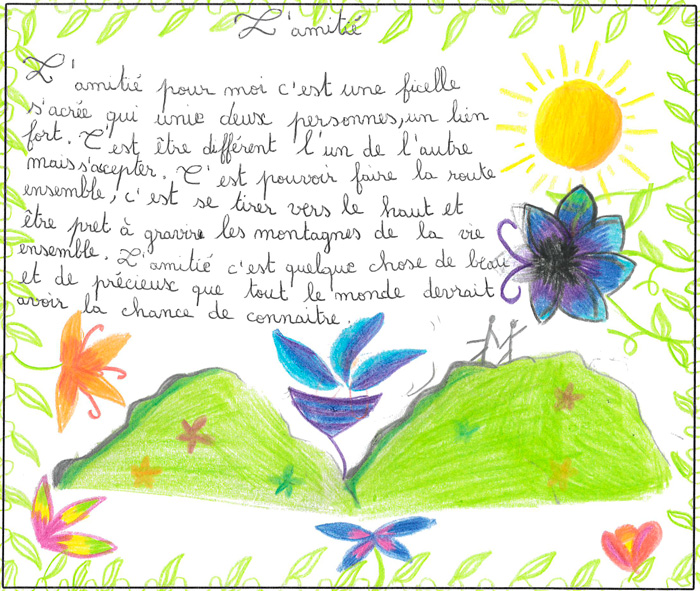 L'amitié
L'amitié pour moi c'est une ficelle
s'acrée qui unie deux personnes, un lien
fort. C'est être différent l'un de l'autre
mais s'accepter. C'est pouvoir faire la route
ensemble, c'est se tirer vers le haut et
être pret à gravire les montagnes de la vie
ensemble. L'amitié c'est quelque chose de beau
et de précieux que tout le monde devrait
avoir la chance de connaitre.